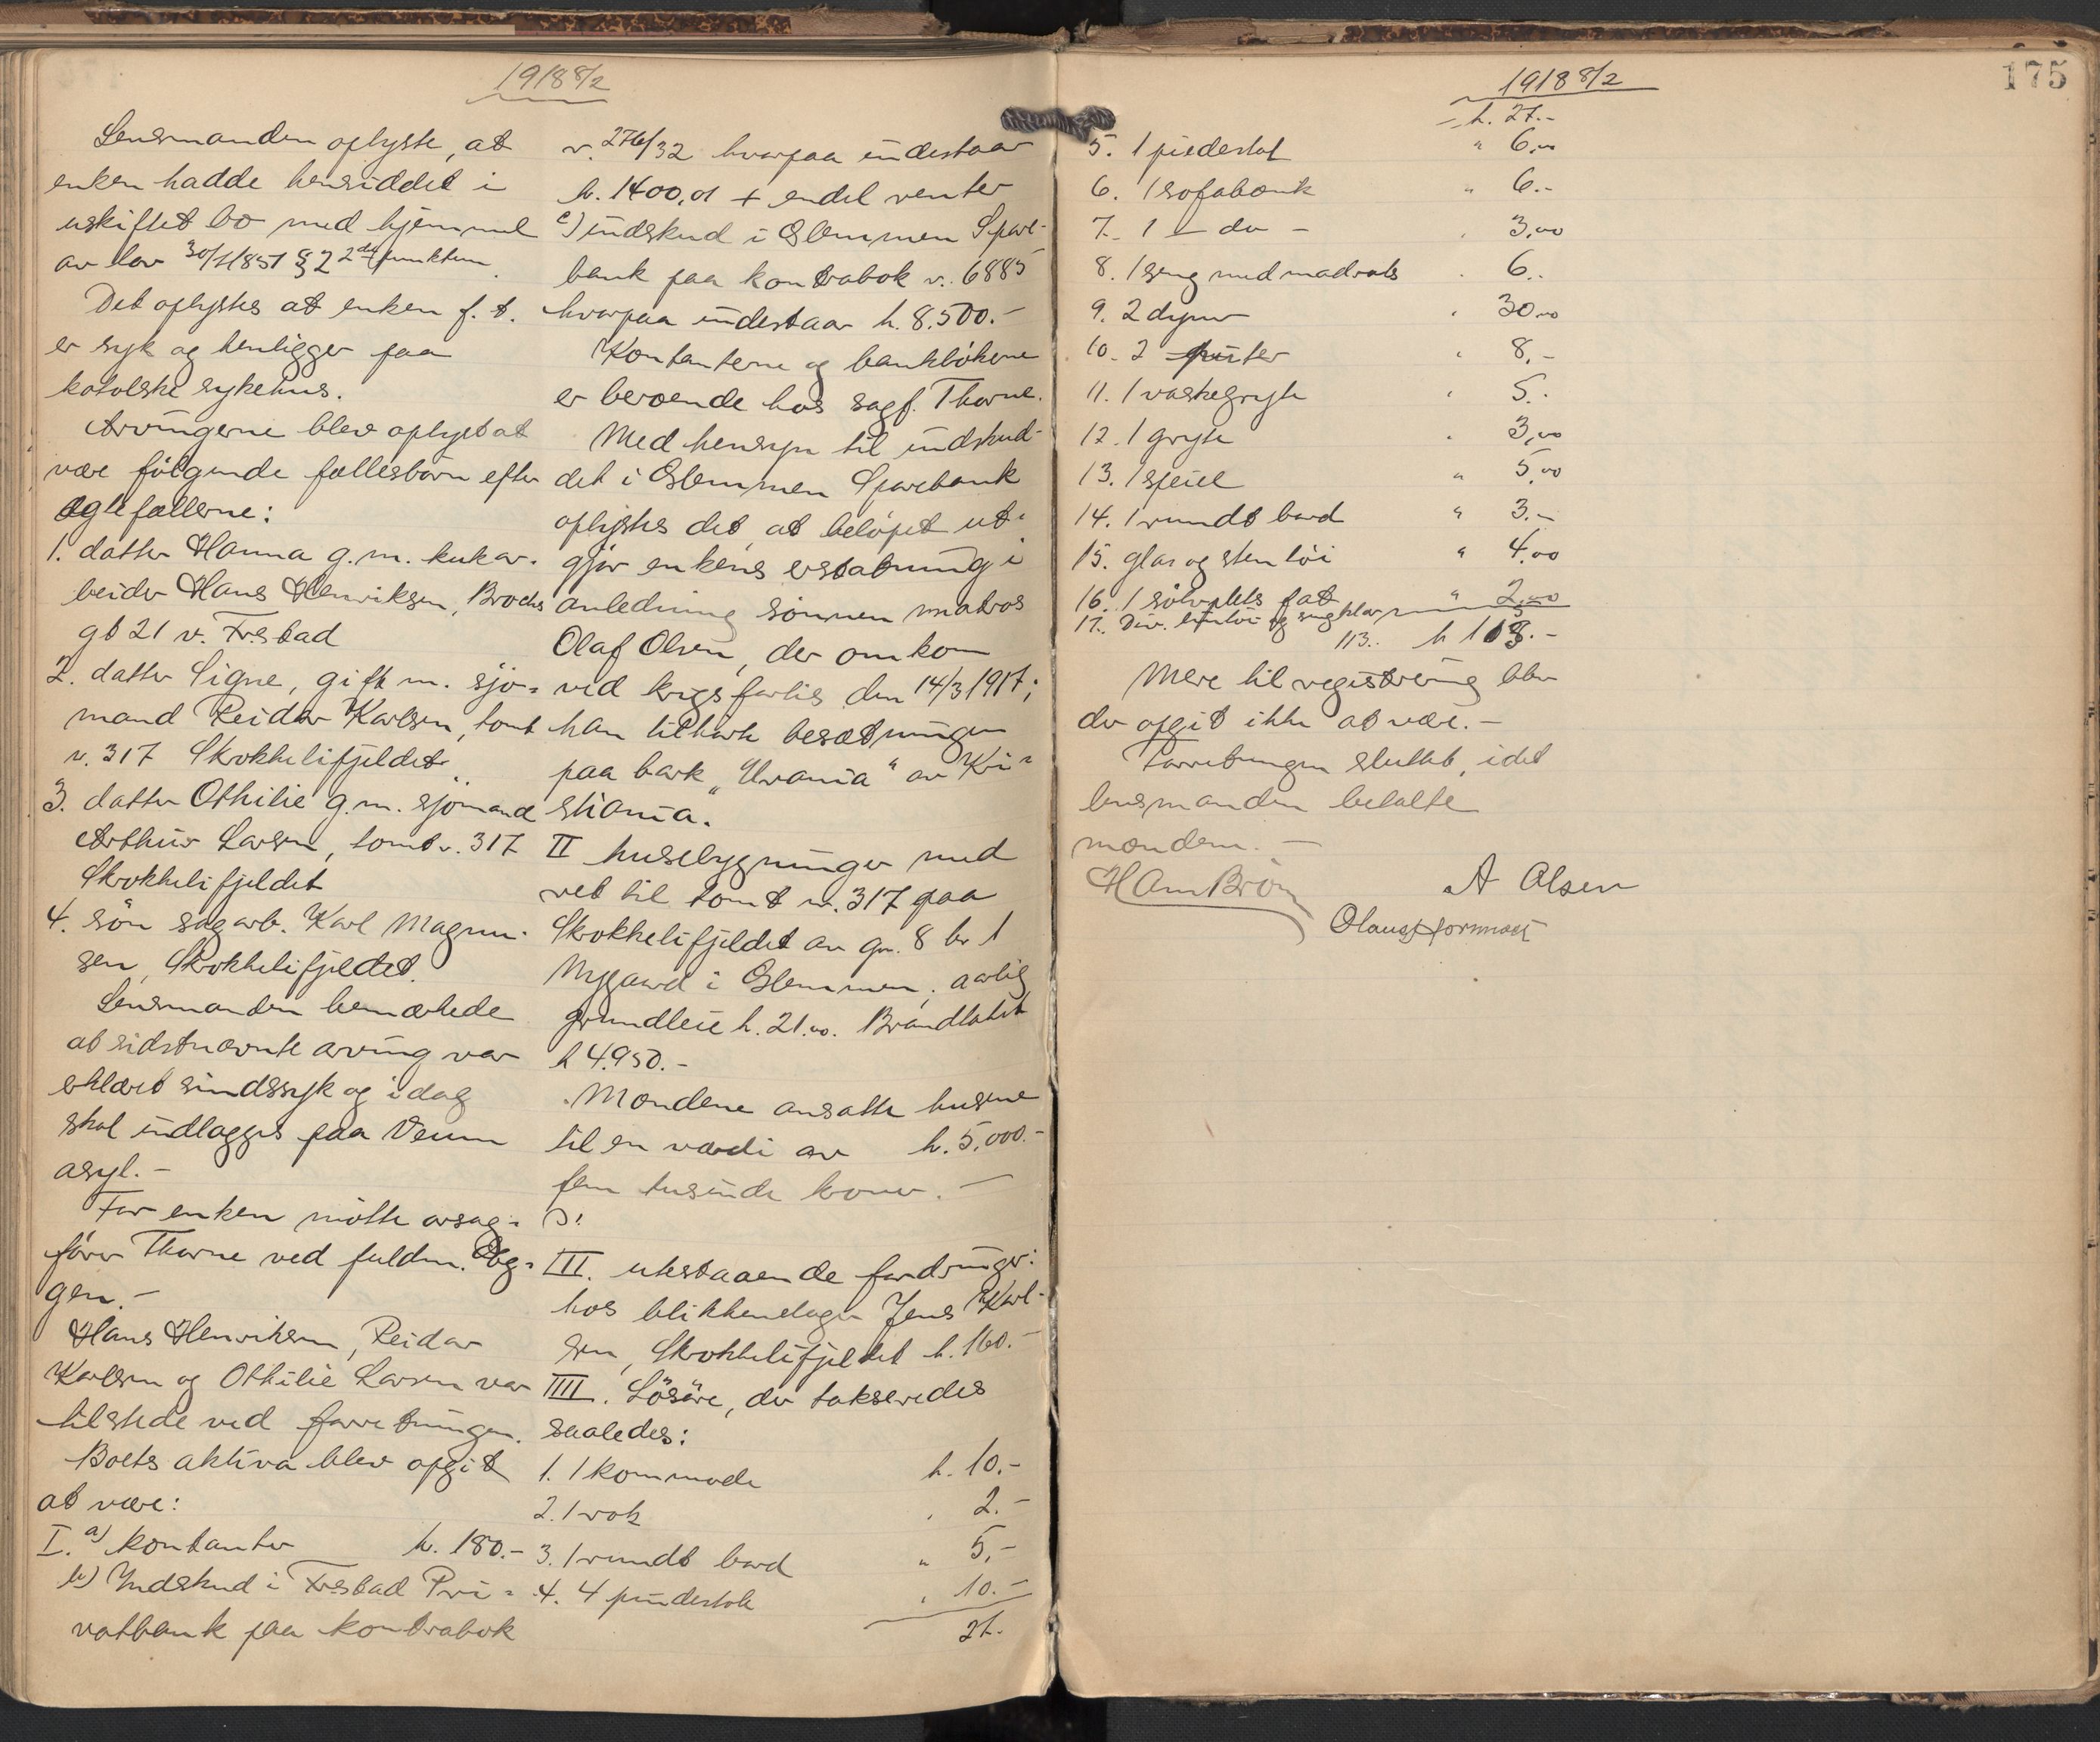 1918 8/2
Lensmanden oplyste, at
enken hadde hensiddet i
uskiftet bo med hjemmel
av lov 30/7 1851 § 2 2det punktum.
Det oplystes at enken f. t.
er syk og henligger paa
katolske sykehus.
Arvingerne blev oplyst at
være følgende fællesbarn efter
egtefællerne:
1. datter Hanna g.m. kukar-
beider Hans Henriksen, Brochs
gt 21 v. Fr.stad
2. datter Signe, gift m. sjø-
mand Reidar Karlsen, tomt
nr. 317 Skokkelifjeldet
3. datter Othilie g.m. sjømand
Arthur Larsen, tomt nr. 317
Skokkelifjeldet
4. søn sagarb. Karl Magnu-
sen, Skokkelifjeldet.
Lensmanden bemærkede
at sidstnævnte arving var
erklært sindssyk og i dag
skal indlægges paa Veum
asyl.-
For enken møtte orsag-
fører Thorne ved fuldm.
gen.-
Hans Henriksen, Reidar
Karlsen og Othilie Larsen var
tilstede ved forretningen.
Boets aktiva blev opgit
at være:
I. a) kontanter k. 180.-
b) Indskud i Fr.stad Pri-
vatbank paa kontrabok
nr. 276/32 hvorpaa indestaar
k. 1400,01 + endel renter
c) indskud i Glemmen Spare-
bank paa kontrabok nr. 6885
hvorpaa indestaar k. 8.500.-
Kontanterne og bankbøkene
er beroende hos sagf. Thorne.
Med hensyn til indskud-
det i Glemmen Sparebank
oplystes det, at beløpet ut-
gjør enkens erstatning i
anledning sønnen matros
Olaf Olsen, der omkom
ved krigsforlis den 14/3 1917;
han tilhørte besætningen
paa bark „Urania" av Kri-
stiania.
II husebygninger med
ret til tomt nr. 317 paa
Skokkelifjeldet av gn. 8 br 1
Nygaard i Glemmen, aarlig
grundleie k. 21.00. Brandtakst
k 4.950.-
Mændene ansatte husene
til en værdi av k. 5.000.-
fem tusinde kroner.-
III. utestaaende fordringer:
hos blikkenslager Jens Karl-
sen, Skokkelifjeldet k. 160.-
IIII. Løsøre, der takseredes
saaledes:
1. 1 kommode k. 10.-
2. 1 rok " 2.-
3. 1 rundt bord " 5,-
4. 4 pindestole " 10.-
27.-
1918 8/2
175
k. 27.-
5. 1 piedestal " 6,00
6. 1 sofabænk " 6.-
7. 1 - do - " 3,00
8. 1 seng med madrats " 6..
9. 2 dyner " 30,00
10. 2 puter " 8,-
11. 1 vaskegryte " 5.-
12. 1 gryte " 3,00
13. 1 speil " 5,00
14. 1 rundt bord " 3.-
15. glas og stentøi " 4,00
16. 1 sølvplets fat " 2,00
17. Div. lintøi og sengklær
113.. k 108.-
Mere til registrering blev
der opgit ikke at være.-
Forretningen sluttet, idet
lensmanden betalte
mændene.-
A Olsen
Olaus